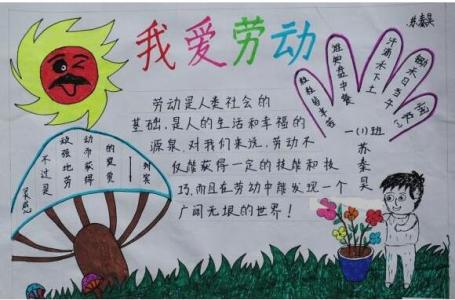 苏秦昊
我爱劳动
锄禾日当午
汗滴禾下土
谁知盘中餐
粒粒皆辛苦
劳动是人类社会的
基础,是人的生活和幸福的
源泉,对我们来说,劳动不
仅能获得一定的技能和技
巧,而且在劳动中能发现一个
广阔无垠的世界!
一(1)班
苏秦昊
灵感
不过是
顽强地劳
动而获得
的奖赏
——列宾